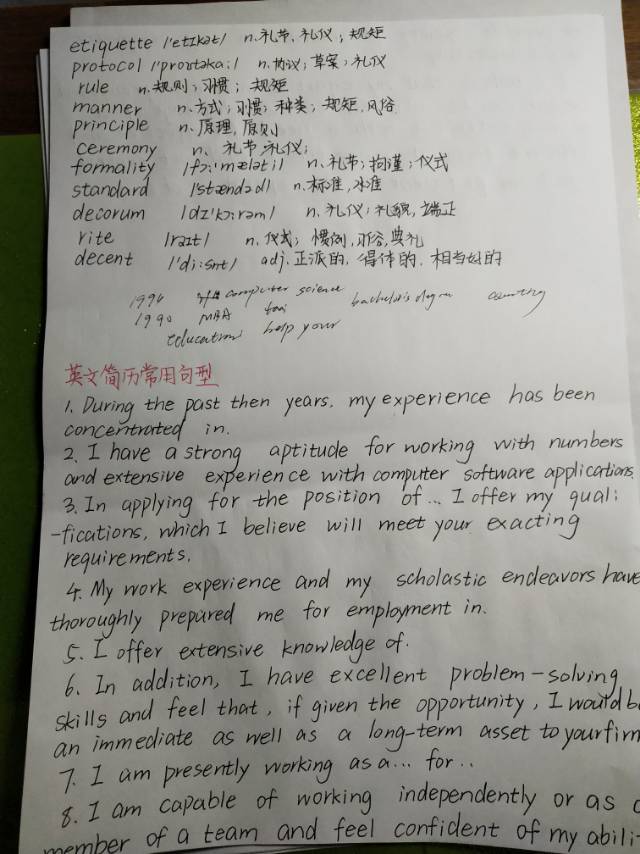 etiquette /'etɪkət/ n.礼节、礼仪；规矩
protocol /'proʊtəkɑ:l/ n.协议；草案；礼仪
rule n.规则；习惯；规矩
manner n.方式；习惯；种类；规矩,风俗
principle n.原理,原则
ceremony n、礼节,礼仪；
formality /fɔ:'mæləti/ n.礼节；拘谨；仪式
standard /'stændəd/ n.标准,水准
decorum /dɪ'kɔ:rəm/ n.礼仪；礼貌,端正
rite /raɪt/ n.仪式；惯例,习俗,典礼
decent /'di:snt/ adj.正派的,得体的,相当好的
1994 computer science bachelor's degree
1990 MBA
education help your
英文简历常用句型
1. During the past then years, my experience has been
concentrated in.
2. I have a strong aptitude for working with numbers
and extensive experience with computer software applications.
3. In applying for the position of... I offer my quali
-fications, which I believe will meet your exacting
requirements.
4. My work experience and my scholastic endeavors have
thoroughly prepared me for employment in.
5. I offer extensive knowledge of.
6. In addition, I have excellent problem-solving
skills and feel that, if given the opportunity, I would b
an immediate as well as a long-term asset to your firm
7. I am presently working as a... for..
8. I am capable of working independently or as a
member of a team and feel confident of my abili